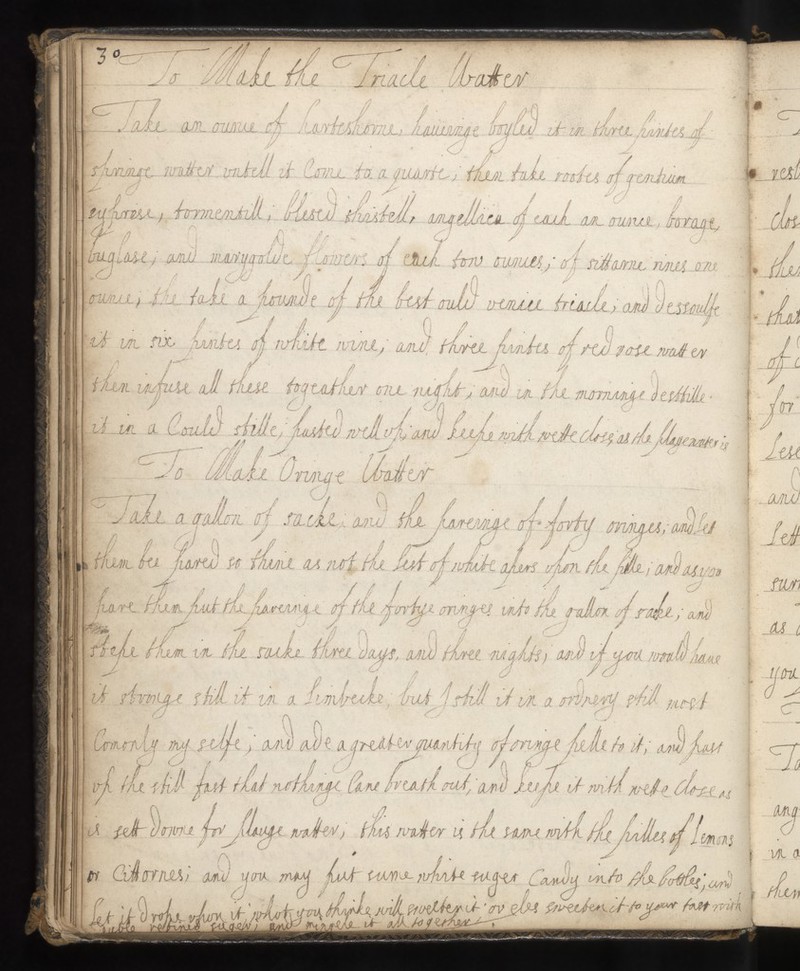 30
To Make the Triacle Watter
Take an ounce of harteshorne, haueinge boyled it in three pintes of
springe watter vntell it Come to a quarte, then take rootes of gentium
cyprose, tormentill, blesed thistell, angellica of each an ounce, borage,
buglase, and marygolde flowers of each tow ounces, of sittarne rines one
ounce, the take a pounde of the best ould venice triacle, and dessoulfe
it in six pintes of white wine, and three pintes of red rose watter
then infuse all these togeather one night, and in the morninge desstille
it in a Could stille, pasted well vp, and keepe with wette close as the plage water is
To Make Oringe Watter
Take a gallon of sacke, and the pareinge of forty oringes, and let
them bee pared so thine as not the lest of white apers vpon the pille, and as you
pare them put the pareinge of the fortye oringes into the gallon of sacke, and
stepe them in the sacke three days, and three nights, and if you would haue
it stronge still it in a limbecke, but I still it in a ordnery still most
Comonly my selfe, and ade a greater quantity of oringe pelle to it, and past
vp the still fast that nothinge Cane breath out, and keepe it with wette close as
is sett downe for plauge watter, this watter is the same with the pilles of lemons
or Cittornes, and you may put sume white suger Candy into the botles, and
let it drope vpon it, what you thinke will sweeten it or eles sweeten it to your tast with
duble refined suger, and mingele it all together.
rest
clos
the
that
of
for
and
lett
as
you
To
ang
in a
then